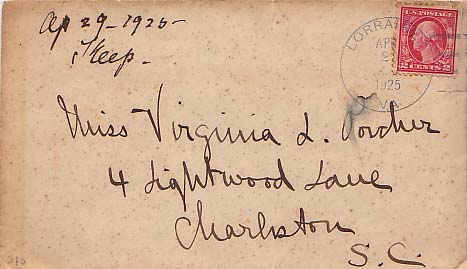 Ap 29-1925-
Keep.
U.S. POSTAGE
2 CENTS 2
LORRA
AP
2
1925
VA.
Miss Virginia L. Porcher
4 Lightwood Lane
Charleston
S.C.